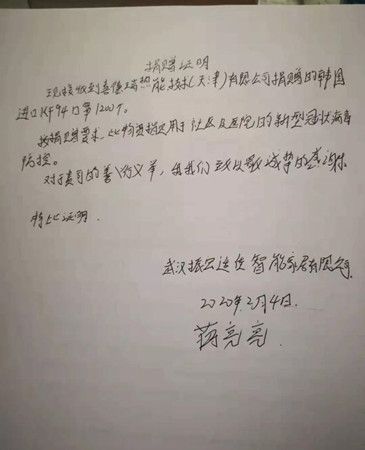 捐赠证明
现接收到喜德瑞热能技术(天津)有限公司捐赠的韩国
进口KF94口罩1200个。
按捐赠要求,此物资将定用于社区及医院的新型冠状病毒
防控。
对于贵司的善心义举,我们致以最诚挚的感谢
特此证明.
武汉 智能家居有限公司
2020年2月4日.
蒋亮亮.